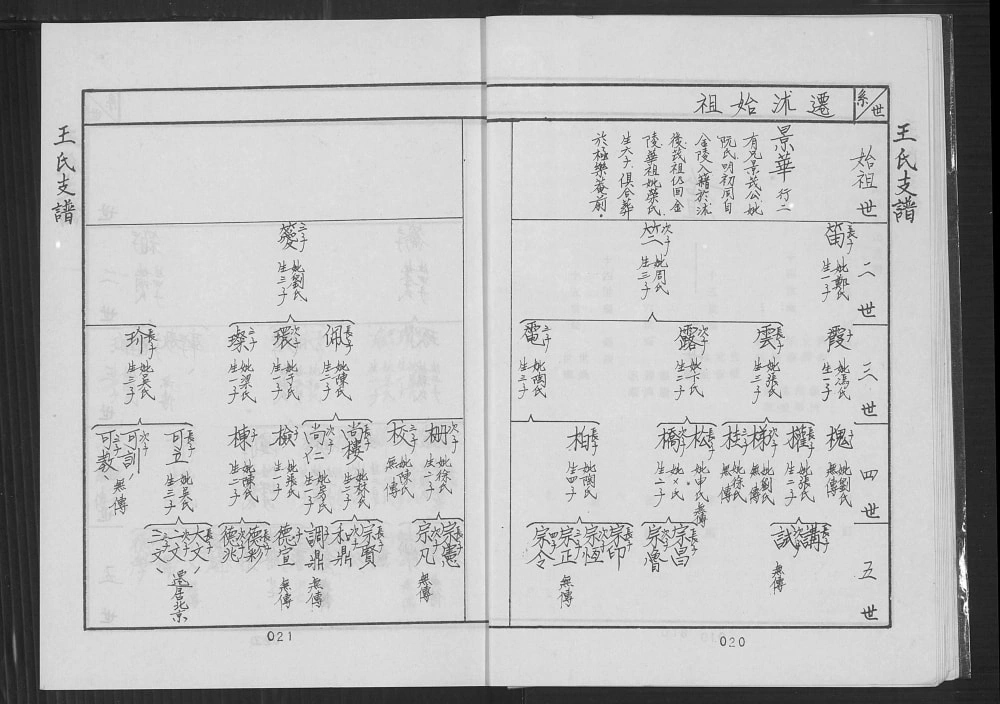 王氏支譜
系世
遷沭始祖
始祖世
景華 行二
有兄景茂公妣
阮氏明初同自
金陵入籍於沭
後茂祖仍回金
陵華祖妣榮氏
生六子俱合葬
於極樂菴前。
二世
笛 長子 妣鄭氏 生一子
竺 次子 妣周氏 生三子
三子 妣劉氏 生三子
三世
霞 子 妣馮氏 生一子
雲 長子 妣張氏 生三子
露 次子 妣卞氏 生二子
電 三子 妣陶氏 生三子
佩 長子 妣陳氏 生二子
環 次子 妣于氏 生一子
璨 三子 妣梁氏 生一子
珍 長子 妣吳氏 生三子
四世
槐 子 妣劉氏 無傳
權 長子 妣張氏 生二子
梯 次子 妣劉氏 無傳
桂 三子 妣徐氏 無傳
松 長子 妣申氏 無傳
橋 次子 妣乂氏 生二子
柏 長子 妣陶氏 生四子
栅 次子 妣徐氏 生二子
校 三子 妣陳氏 無傳
尚樓 長子 妣林氏 生二子
尚仁 次子 妣 氏 生一子
檢 子 妣張氏 生一子
棟 子 妣陳氏 生二子
可立 長子 妣吳氏 生三子
可訓 次子
可教 三子 無傳
五世
講 長子
試 次子 無傳
宗昌 長子
宗魯 次子
宗印 長子
宗恆 次子
宗正 三子 無傳
宗令 四子
宗憲 長子
宗凡 次子 無傳
宗賢 長子
和鼎 次子
調鼎 子 無傳
德宣 子 無傳
德彩 長子
德兆 次子
大文 長子
二文 次子
三文 三子
還居北京
王氏支譜
020
021